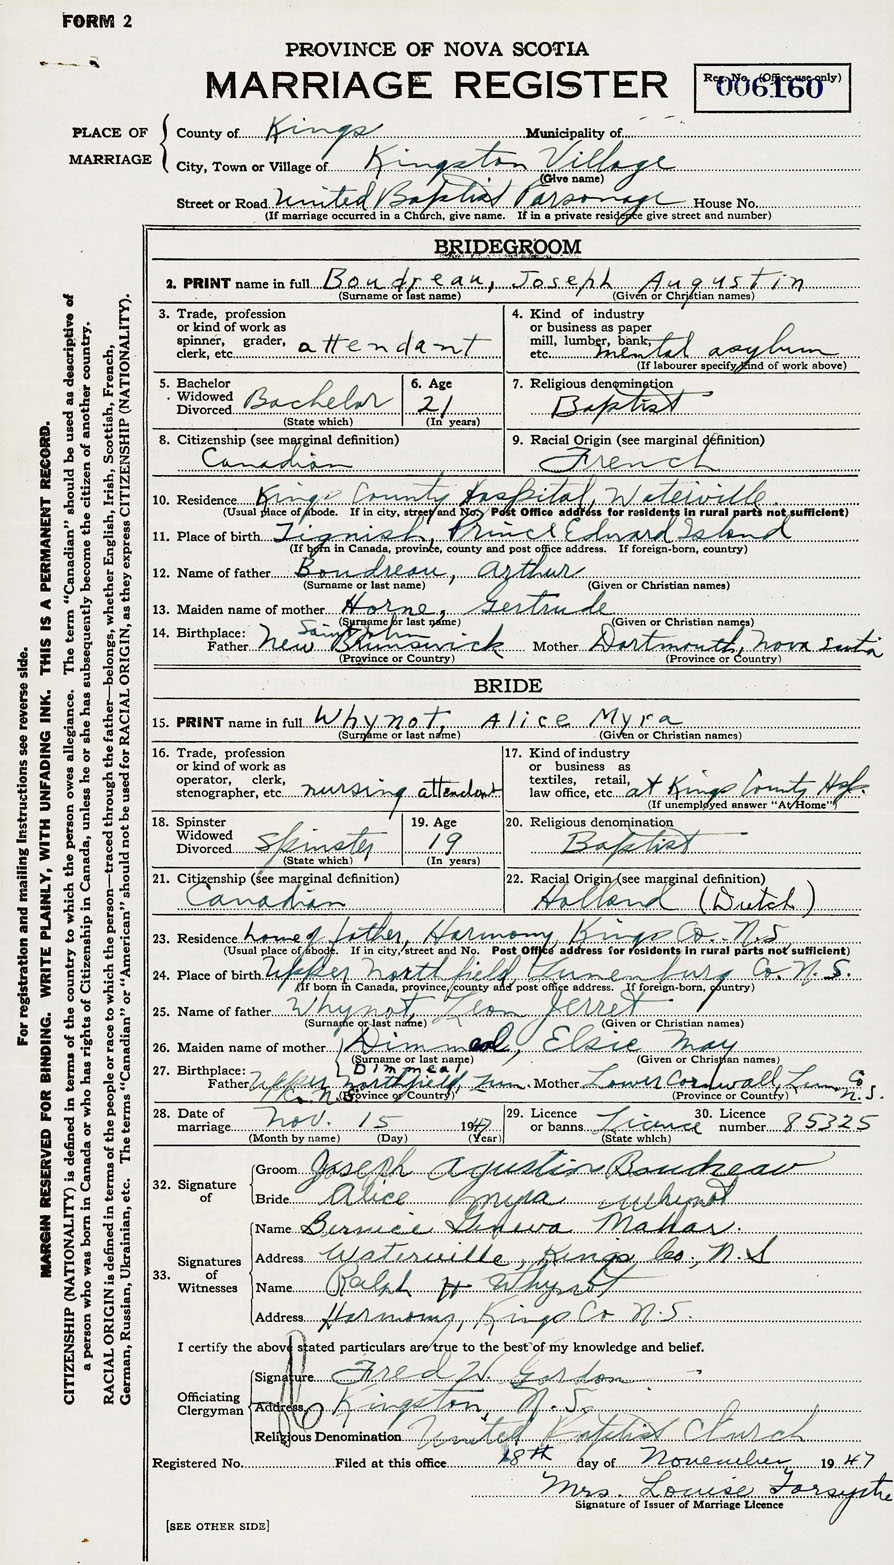 FORM 2
PROVINCE OF NOVA SCOTIA
MARRIAGE REGISTER
Reg. No. (Office use only)
006160
PLACE OF MARRIAGE
County of Kings Municipality of
City, Town or Village of Kingston Village
(Give name)
Street or Road United Baptist Parsonage House No.
(If marriage occurred in a Church, give name. If in a private residence give street and number)
BRIDEGROOM
2. PRINT name in full Boudreau, Joseph Augustin
(Surname or last name) (Given or Christian names)
3. Trade, profession or kind of work as spinner, grader, clerk, etc. attendant
4. Kind of industry or business as paper mill, lumber, bank, etc. mental asylum
(If labourer specify kind of work above)
5. Bachelor Widowed Divorced Bachelor
(State which)
6. Age 21
(In years)
7. Religious denomination
Baptist
8. Citizenship (see marginal definition)
Canadian
9. Racial Origin (see marginal definition)
French
10. Residence Kings County Hospital, Waterville
(Usual place of abode. If in city, street and No. Post Office address for residents in rural parts not sufficient)
11. Place of birth Tignish, Prince Edward Island
(If born in Canada, province, county and post office address. If foreign-born, country)
12. Name of father Boudreau, Arthur
(Surname or last name) (Given or Christian names)
13. Maiden name of mother Horne, Gertrude
(Surname or last name) (Given or Christian names)
14. Birthplace: Father Saint John New Brunswick Mother Dartmouth, Nova Scotia
(Province or Country) (Province or Country)
BRIDE
15. PRINT name in full Whynot, Alice Myra
(Surname or last name) (Given or Christian names)
16. Trade, profession or kind of work as operator, clerk, stenographer, etc. nursing attendant
17. Kind of industry or business as textiles, retail, law office, etc. at Kings County Hsp.
(If unemployed answer "At Home")
18. Spinster Widowed Divorced Spinster
(State which)
19. Age 19
(In years)
20. Religious denomination
Baptist
21. Citizenship (see marginal definition)
Canadian
22. Racial Origin (see marginal definition)
Holland (Dutch)
23. Residence home of father, Harmony, Kings Co. N.S
(Usual place of abode. If in city, street and No. Post Office address for residents in rural parts not sufficient)
24. Place of birth Upper Northfield Lunenburg Co. N.S.
(If born in Canada, province, county and post office address. If foreign-born, country)
25. Name of father Whynot, Leon Jerret
(Surname or last name) (Given or Christian names)
26. Maiden name of mother Dimmeal, Elsie May
(Surname or last name) (Given or Christian names)
Dimmeal
27. Birthplace: Father Upper Northfield, Lun. Co. N.S. Mother Lower Cornwall, Lun Co N.S.
(Province or Country) (Province or Country)
28. Date of marriage Nov. 15 1947
(Month by name) (Day) (Year)
29. Licence or banns Licence
(State which)
30. Licence number 85325
32. Signature of
Groom Joseph Agustin Boudreau
Bride Alice Myra Whynot
33. Signatures of Witnesses
Name Bernice Geneva Mahar.
Address Waterville, Kings Co., N.S
Name Ralph H Whynot
Address Harmony, Kings Co N.S.
I certify the above stated particulars are true to the best of my knowledge and belief.
Officiating Clergyman
Signature Fred H. Gordon
Address Kingston, N.S.
Religious Denomination United Baptist Church
Registered No. Filed at this office 18th day of November 1947
Mrs. Louise Forsythe
Signature of Issuer of Marriage Licence
[SEE OTHER SIDE]
For registration and mailing instructions see reverse side.
MARGIN RESERVED FOR BINDING. WRITE PLAINLY, WITH UNFADING INK. THIS IS A PERMANENT RECORD.
CITIZENSHIP (NATIONALITY) is defined in terms of the country to which the person owes allegiance. The term "Canadian" should be used as descriptive of
a person who was born in Canada or who has rights of Citizenship in Canada, unless he or she has subsequently become the citizen of another country.
RACIAL ORIGIN is defined in terms of the people or race to which the person—traced through the father—belongs, whether English, Irish, Scottish, French,
German, Russian, Ukrainian, etc. The terms "Canadian" or "American" should not be used for RACIAL ORIGIN, as they express CITIZENSHIP (NATIONALITY).